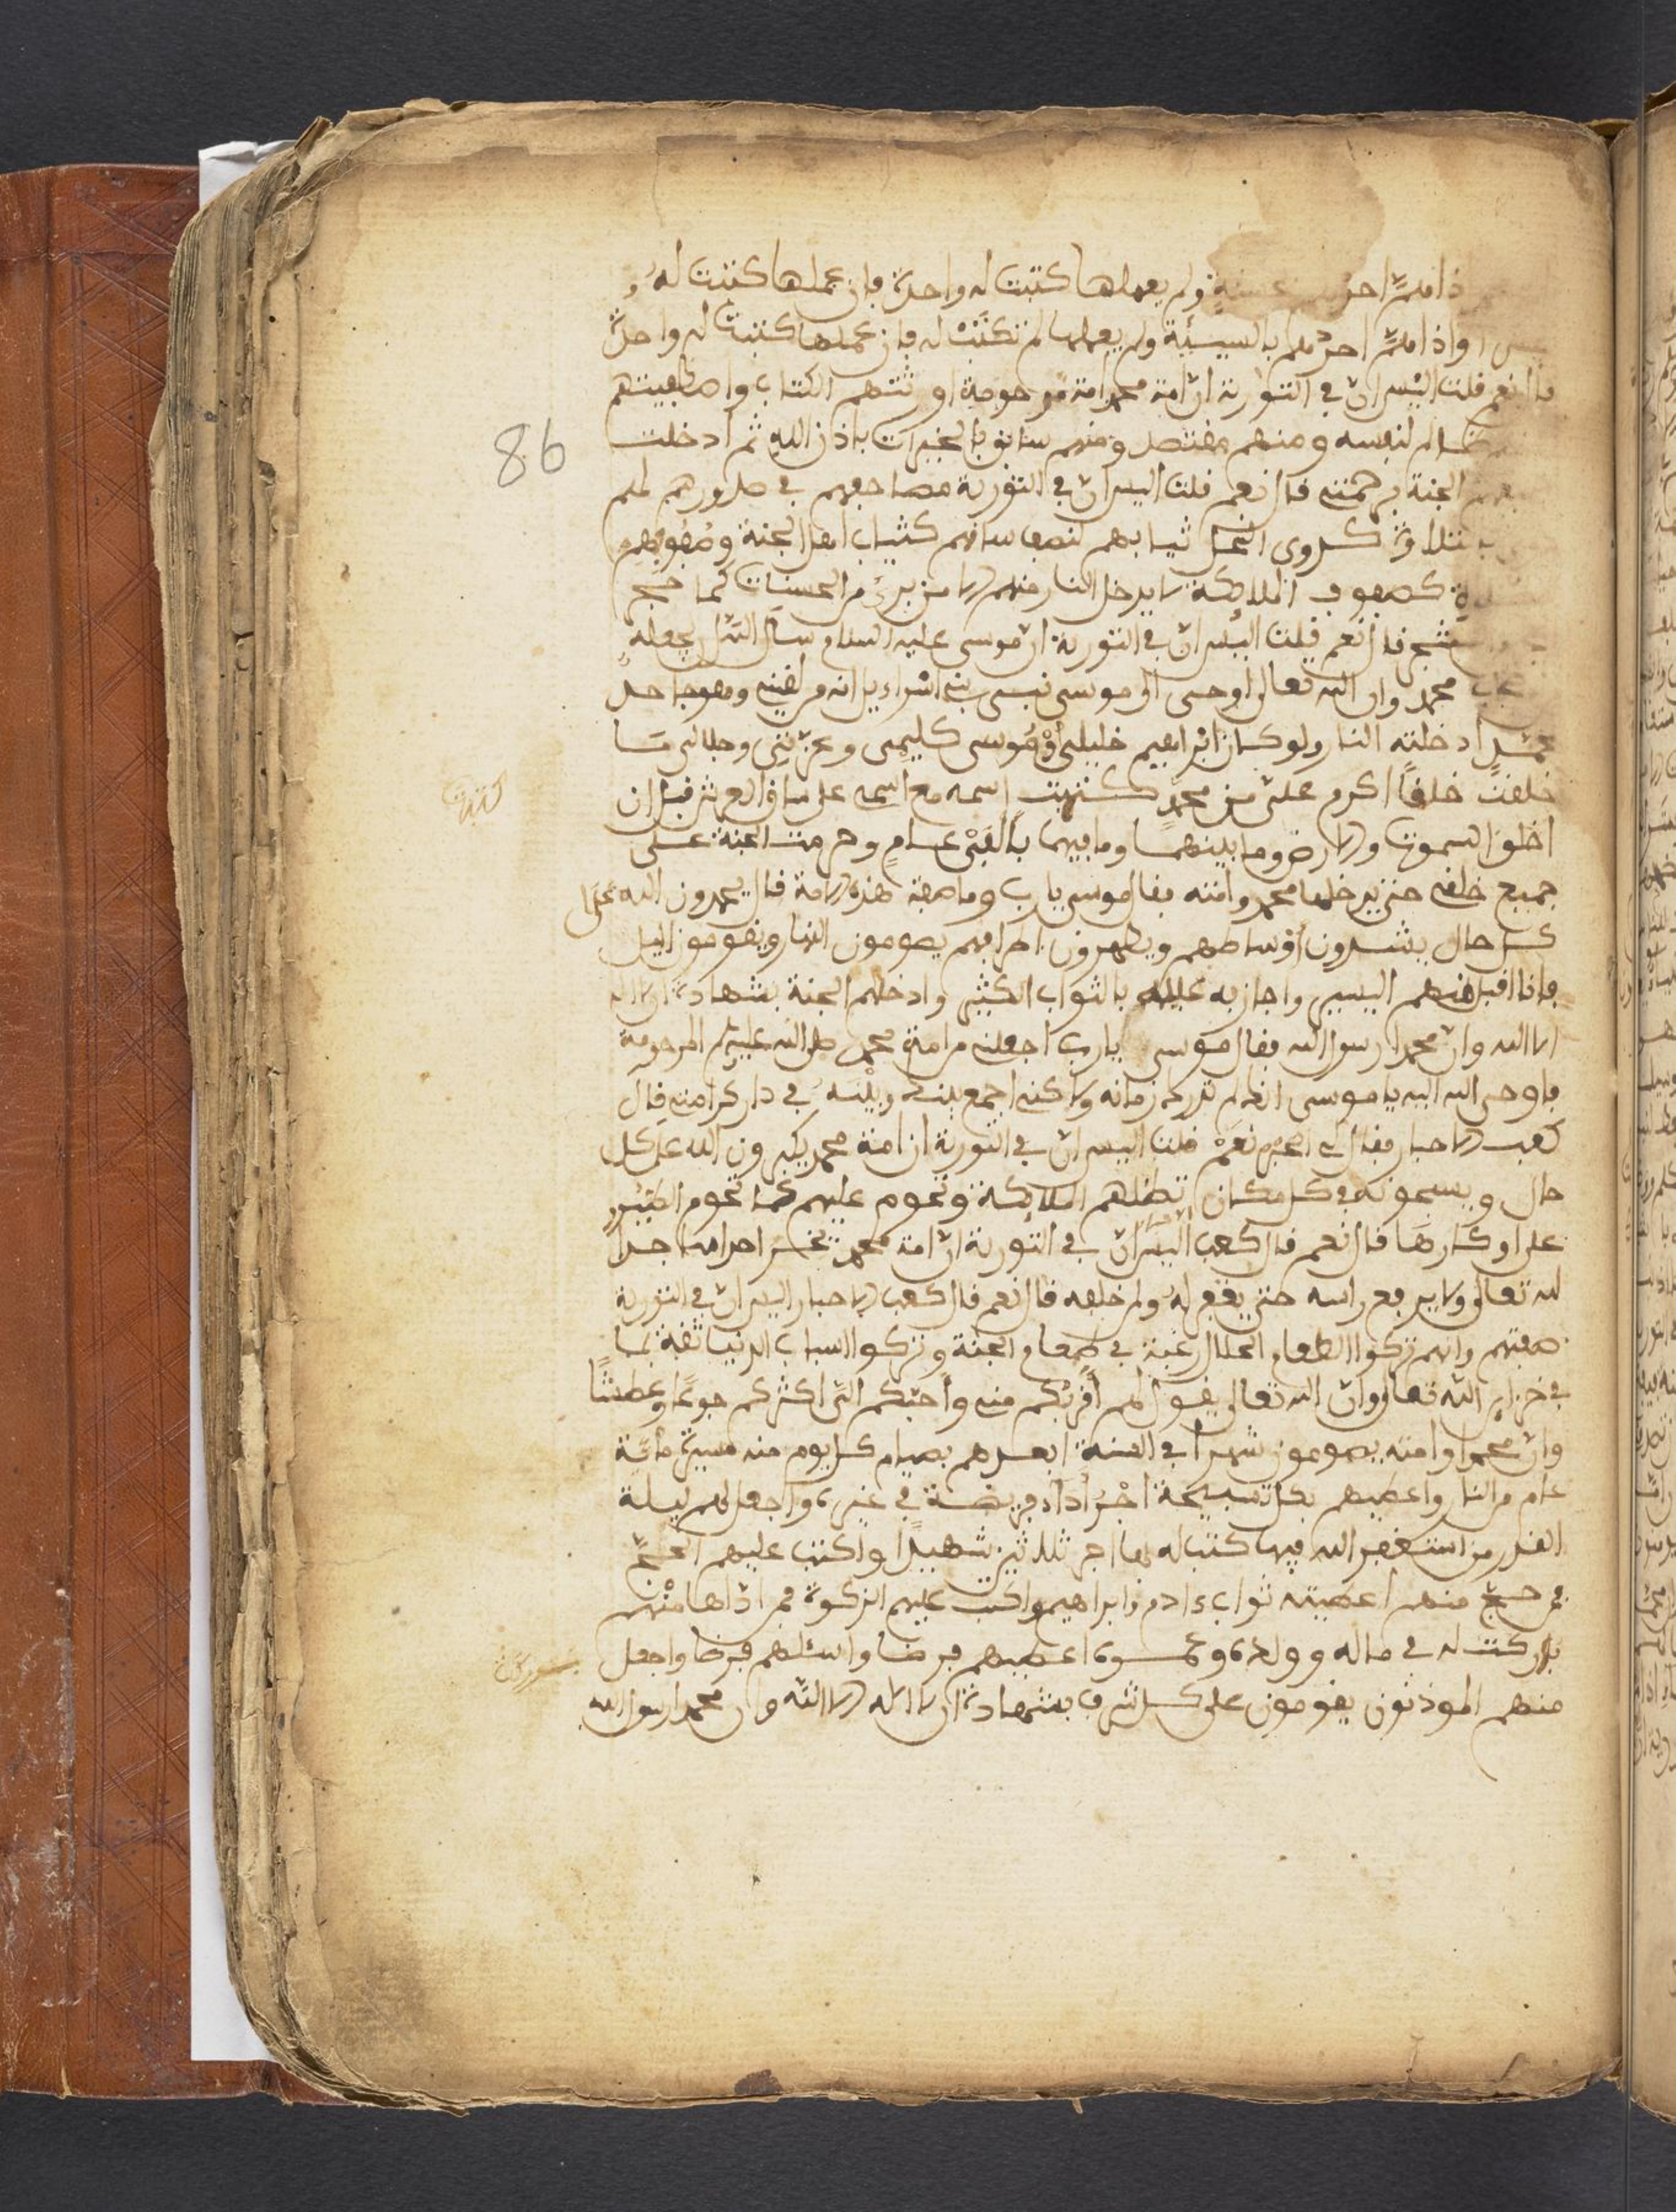 ذا هم احدهم بحسنة ولم يعملها كتبت له واحدة فان عملها كتبت له
واذا هم احدهم بالسيئة ولم يعملها لم تكتب له فان عملها كتبت له واحدة
قال نعم قلت اليس ان في التورية ان امة محمد امة مرحومة اورثتهم الكتاب واصطفيتهم
86
ظالم لنفسه ومنهم مقتصد ومنهم سابق بالخيرات باذن الله ثم ادخلت
الجنة برحمتي قال نعم قلت اليس ان في التورية مصاحفهم في صدورهم لهم
كدوي النحل ثيابهم لنصف ساقهم كثياب اهل الجنة وصفوفهم
كصفوف الملايكة لا يدخل النار منهم الا من برئ من الحسنات كما
قال نعم قلت اليس ان في التورية ان موسى عليه السلام سال الله ان يجعله
محمد وان الله تعالى اوحى الى موسى نبي بني اسراءيل انه من لقيني وهو جاحد
بمحمد ادخلته النار ولو كان ابراهيم خليلي او موسى كليمي وعزتي وجلالي ما
خلقت خلقا اكرم علي من محمد كتبت اسمه مع اسمي على ساق العرش قبل ان
كتبت
اخلق السموت والارض وما بينهما وما فيهما بالفي عام وحرمت الجنة على
جميع خلقي حتى يدخلها محمد وامته فقال موسى يا رب وما صفة هذه الامة قال يحمدون الله على
كل حال يشدون اوساطهم ويطهرون اطرافهم يصومون النهار ويقومون الليل
فانا اقبل منهم اليسير واجازيه عليه بالثواب الكثير وادخلهم الجنة بشهادة ان لا اله
الا الله وان محمدا رسول الله فقال موسى يارب اجعلني من امة محمد صلى الله عليه وسلم المرحومة
فاوحى الله اليه يا موسى انك لم تدرك زمانه ولاكني اجمع بينك وبينه في دار كرامتي قال
كعب الاحبار فقال لي الحبر نعم قلت اليس ان في التورية ان امة محمد يكبرون الله على كل
حال ويسبحونه في كل مكان تظلهم الملايكة وتحوم عليهم كما تحوم الطيور
على اوكارها قال نعم قال كعب اليس ان في التورية ان امة محمد يخر احدهم ساجدا
لله تعالى ولا يرفع راسه حتى يغفر له ولمن خلفه قال نعم قال كعب الاحبار اليس ان في التورية
صفتهم وانهم تركوا الطعام الحلال رغبة في طعام الجنة وتركوا اسباب الدنيا ثقة بما
في خزاين الله تعالى وان الله تعالى يقول لهم اقربكم مني واحبكم الي اكثركم جوعا وعطشا
وان محمدا وامته يصومون شهرا في السنة ابعدهم بصيام كل يوم منه مسيرة مائة
عام من النار واعطيهم بكل تسبيحة اجر اداء فريضة في غيره واجعل لهم ليلة
القدر من استغفر الله فيها كتب له بها اجر ثلاثين شهيدا واكتب عليهم الحج
فمن حج منهم اعطيته ثواب ءادم وابراهيم واكتب عليهم الزكوة فمن اداها منهم
باركت له في ماله وولده وعمره اعطيهم قرضا واسئلهم قرضا واجعل
منهم الموذنون يقومون على كل شرف بشهادة ان لا اله الا الله وان محمدا رسول الله